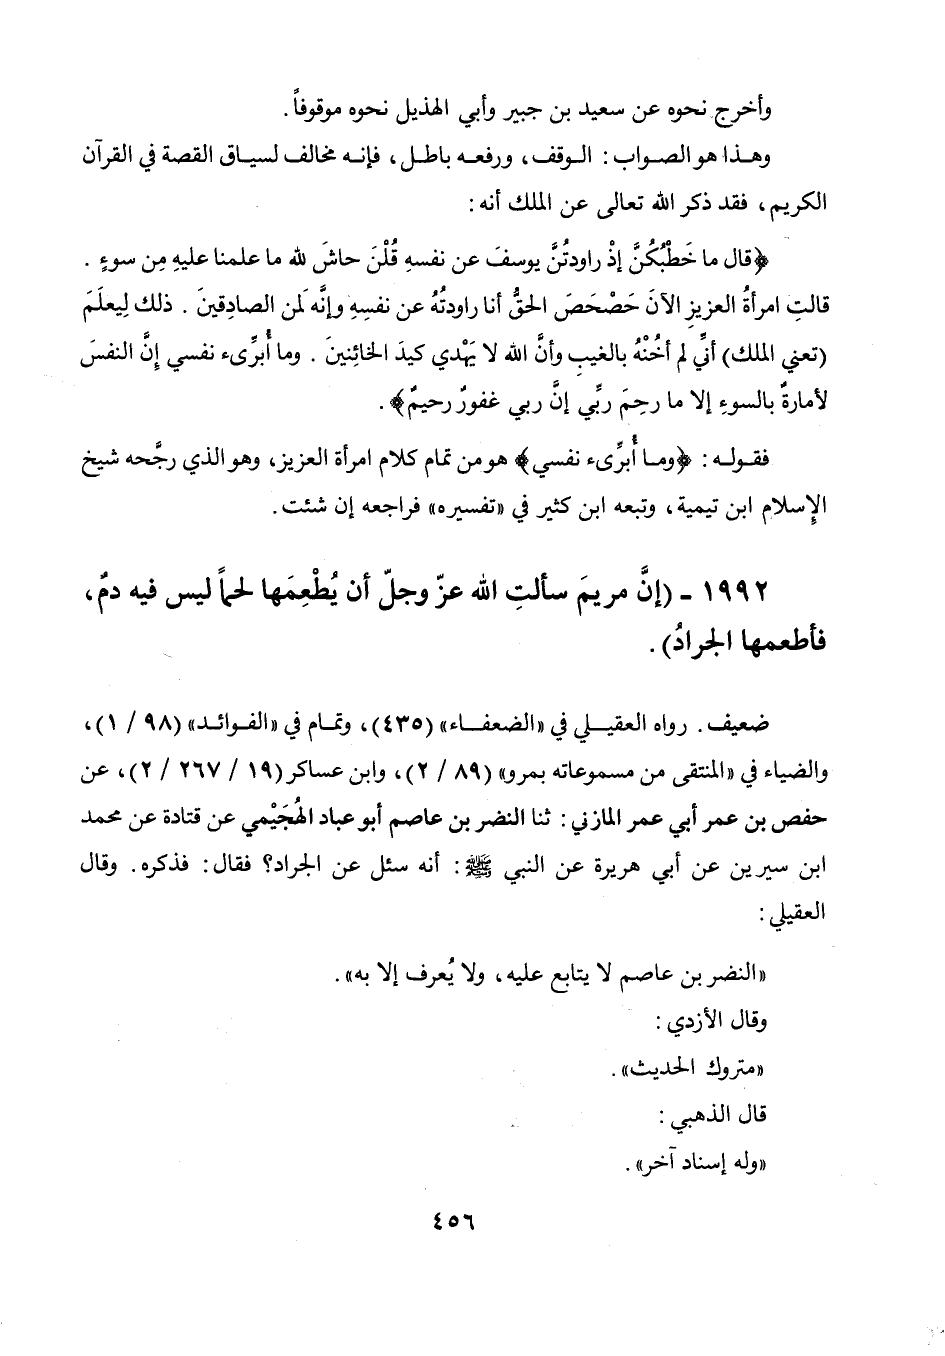 وأخرج نحوه عن سعيد بن جبير وأبي الهذيل نحوه موقوفاً.
وهذا هو الصواب: الوقف، ورفعه باطل، فإنه مخالف لسياق القصة في القرآن
الكريم، فقد ذكر الله تعالى عن الملك أنه:
﴿قال ما خَطْبُكُنَّ إذْ راودتُنَّ يوسفَ عن نفسهِ قُلْنَ حاشَ لله ما علمنا عليهِ مِن سوءٍ .
قالتِ امرأةُ العزيزِ الآنَ حَصْحَصَ الحقُّ أنا راودتُهُ عن نفسِهِ وإنَّه لَمن الصادِقينَ . ذلك لِيعلَمَ
(تعني الملك) أنِّي لم أخُنْهُ بالغيبِ وأنَّ الله لا يَهْدي كيدَ الخائِنينَ . وما أُبَرِّىء نفسي إنَّ النفسَ
لأمارةٌ بالسوءِ إلا ما رحِمَ ربِّي إنَّ ربي غفورٌ رحيمٌ﴾.
فقوله: ﴿وما أُبرِّىء نفسي﴾ هو من تمام كلام امرأة العزيز، وهو الذي رجَّحه شيخ
الإسلام ابن تيمية، وتبعه ابن كثير في «تفسيره» فراجعه إن شئت.
١٩٩٢ - (إنَّ مريمَ سألتِ الله عزّ وجلّ أن يُطْعِمَها لحماً ليس فيه دمٌ،
فأطعمها الجرادُ).
ضعيف. رواه العقيلي في «الضعفاء» (٤٣٥)، وتمام في «الفوائد» (٩٨ / ١)،
والضياء في «المنتقى من مسموعاته بمرو» (٨٩ / ٢)، وابن عساكر (١٩ / ٢٦٧ / ٢)، عن
حفص بن عمر أبي عمر المازني: ثنا النضر بن عاصم أبو عباد الهُجَيْمي عن قتادة عن محمد
ابن سيرين عن أبي هريرة عن النبي ﷺ: أنه سئل عن الجراد؟ فقال: فذكره. وقال
العقيلي:
«النضر بن عاصم لا يتابع عليه، ولا يُعرف إلا به».
وقال الأزدي:
«متروك الحديث».
قال الذهبي:
«وله إسناد آخر».
٤٥٦